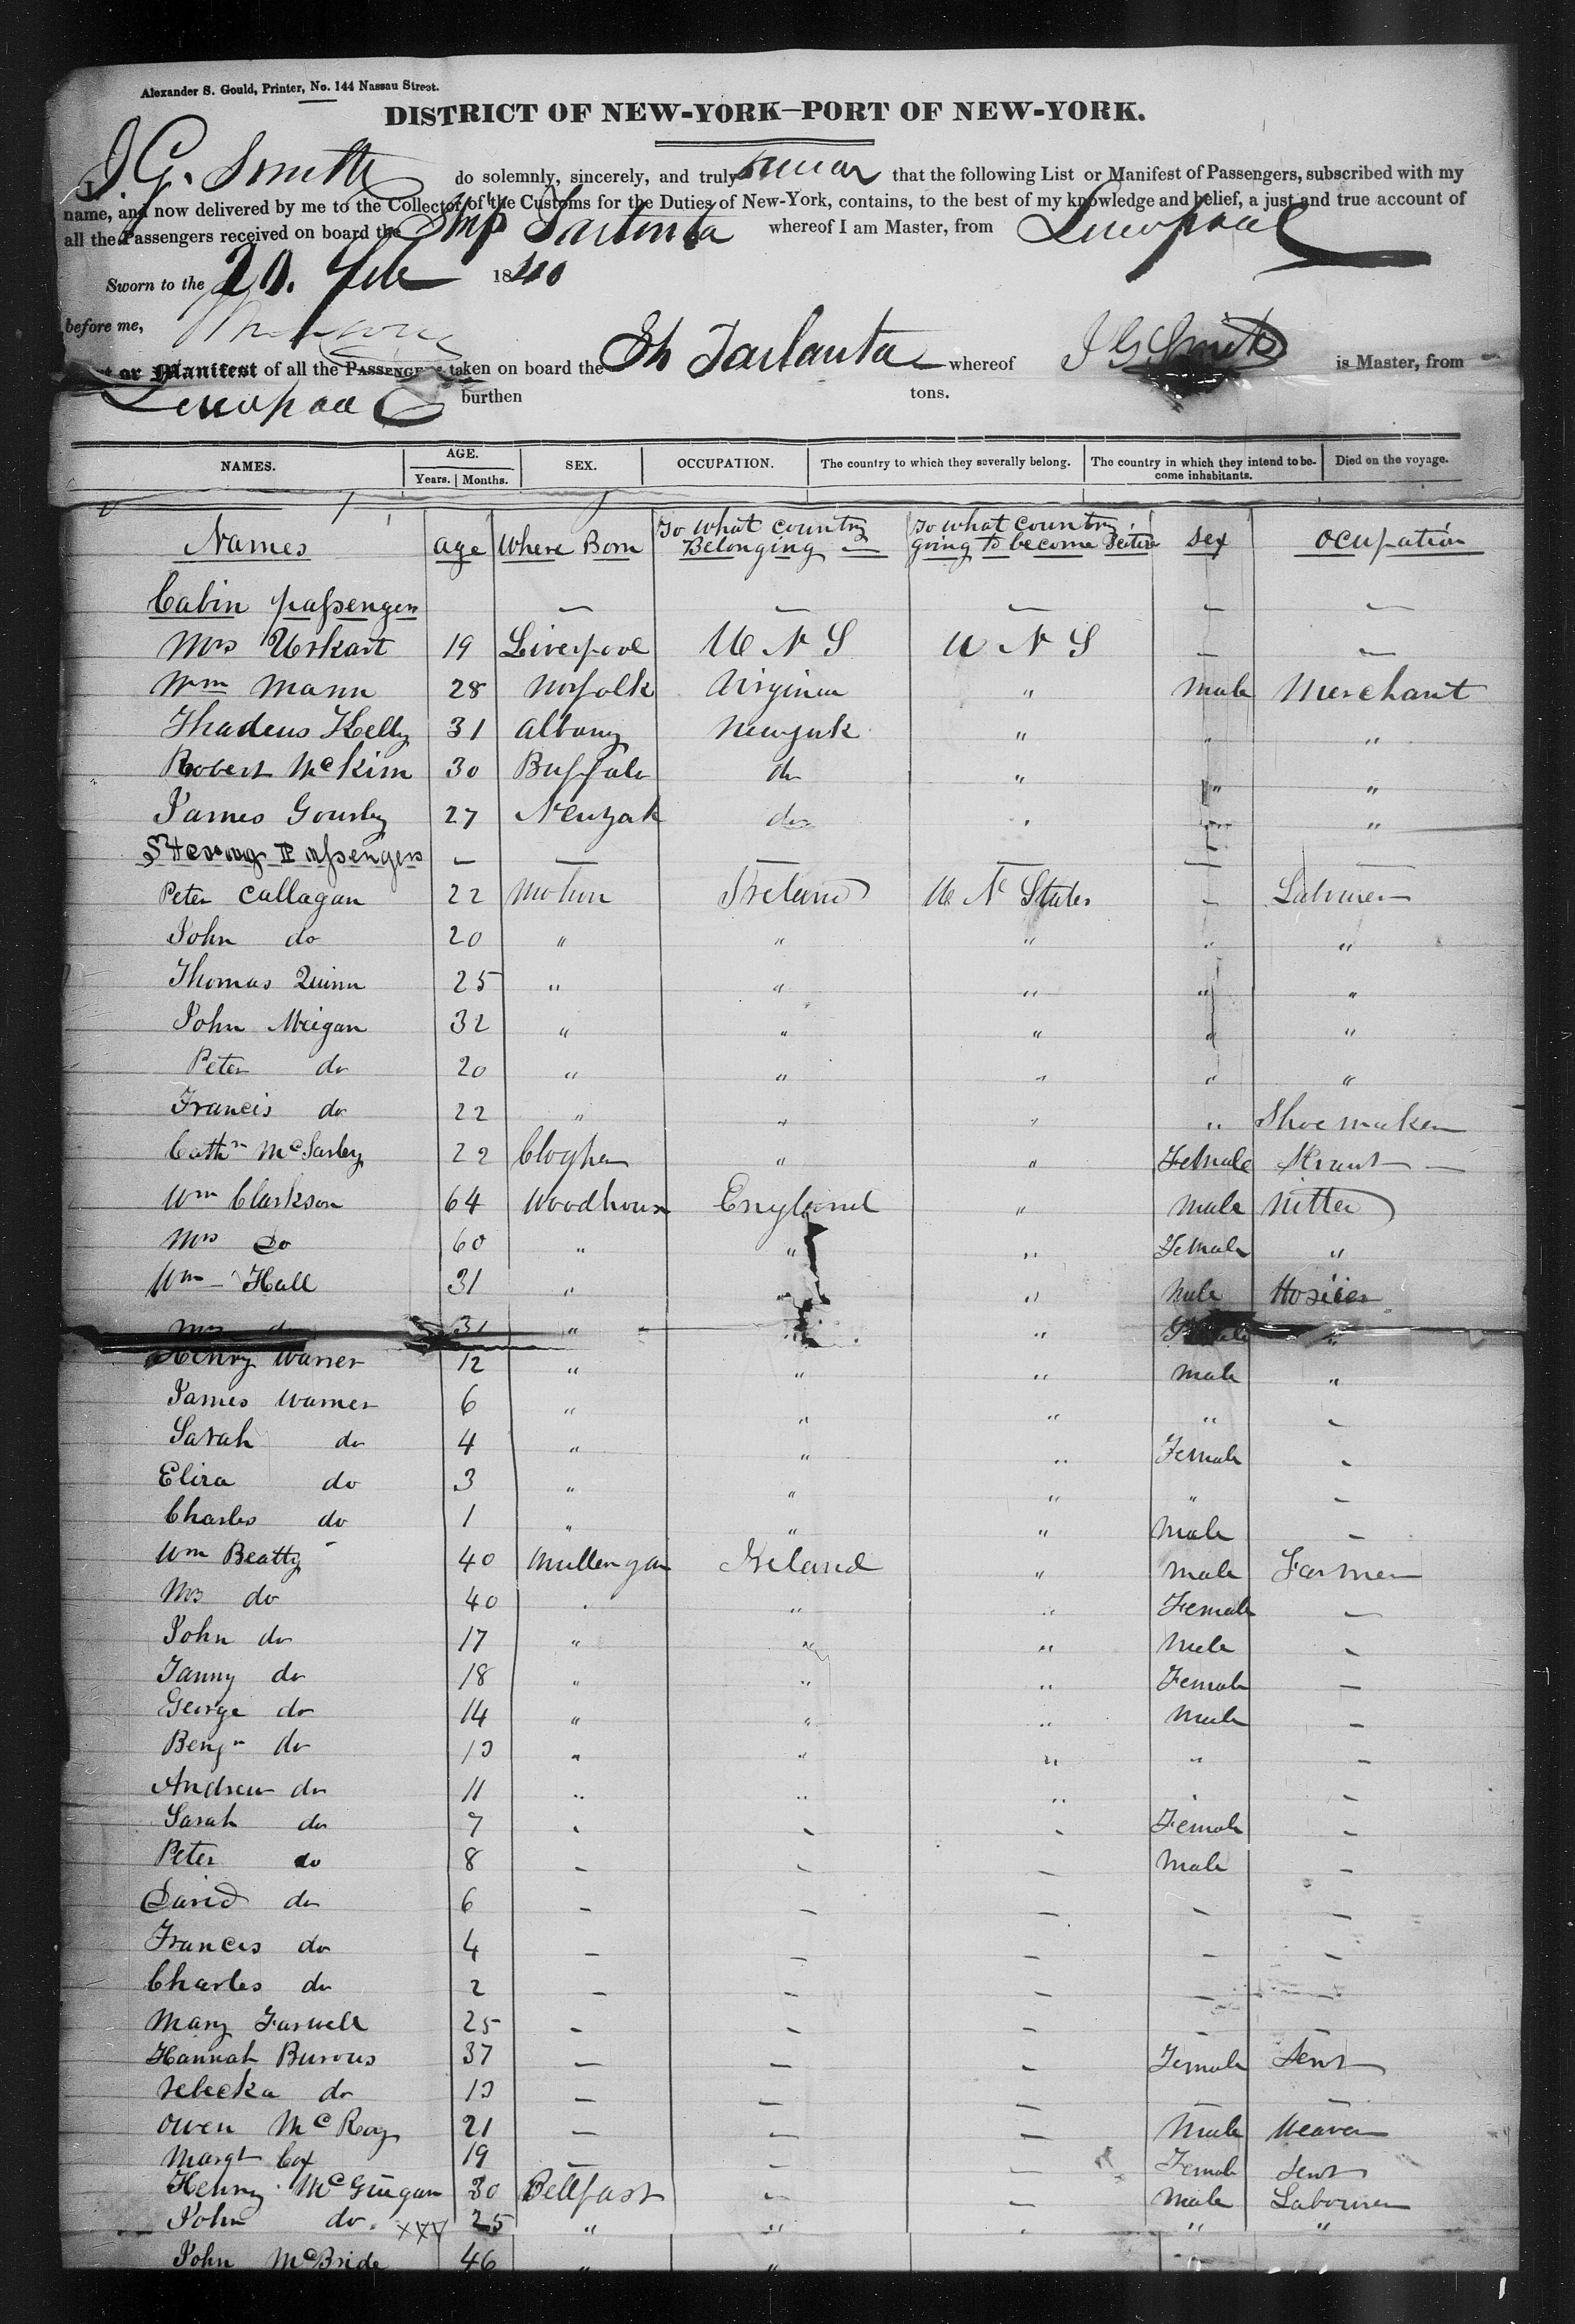 Alexander S. Gould, Printer, No. 144 Nassau Street.
DISTRICT OF NEW-YORK—PORT OF NEW-YORK.
I, J. G. Smith do solemnly, sincerely, and truly swear that the following List or Manifest of Passengers, subscribed with my
name, and now delivered by me to the Collector of the Customs for the Duties of New-York, contains, to the best of my knowledge and belief, a just and true account of
all the Passengers received on board the Ship whereof I am Master, from Liverpool
Sworn to the 20. 1840
before me,
or Manifest of all the PASSENGERS taken on board the Sh whereof J G Smith is Master, from
Liverpool burthen tons.
NAMES. AGE. SEX. OCCUPATION. The country to which they severally belong. The country in which they intend to become inhabitants. Died on the voyage.
Years. Months.
Names age Where Born To what country Belonging To what country going to become Sex Ocupation
Cabin passengers — — — — —
Mrs Urkart 19 Liverpool U N S U N S — —
Wm Mann 28 Norfolk Virginia " male Merchant
Thadeus Kelly 31 Albany Newyork " " "
Robert McKim 30 Buffalo do " " "
James Gourly 27 Newyork do " " "
Sterag Passengers — — — — — —
Peter Callagan 22 Ireland U N States — Labourer
John do 20 " " " " "
Thomas Quinn 25 " " " " "
John Meigan 32 " " " " "
Peter do 20 " " " " "
Francis do 22 " " " " Shoemaker
Cathn 22 Clogher " " Female
Wm Clarkson 64 Woodhouse England " male
Mrs Do 60 " " " Female "
Wm Hall 31 " " " Male Hosier
Mrs do 31 " " " Female "
Henry Warner 12 " " " male "
James Warner 6 " " " " -
Sarah do 4 " " " Female -
Eliza do 3 " " " " -
Charles do 1 " " " Male -
Wm Beatty 40 Mullengar Ireland " male Farmer
Mrs do 40 " " " Female —
John do 17 " " " Male -
do 18 " " " Female —
George do 14 " " " Male —
Benjn do 13 " " " " —
Andrew do 11 " " " " -
Sarah do 7 " - - Female -
Peter do 8 - - - Male -
David do 6 - - - - -
Francis do 4 - - - - -
Charles do 2 - - - - -
Mary Farwell 25 - - - - -
Hannah Burous 37 - - - Female Servt
Rebecka do 13 - - - - -
Owen McRoy 21 - - - Male Weaver
Margt Cox 19 - - - Female Servt
Henry McGuigan 30 Bellfast - - Male Labourer
John do. xxx 25 " " " " "
John McBride 46 " " "